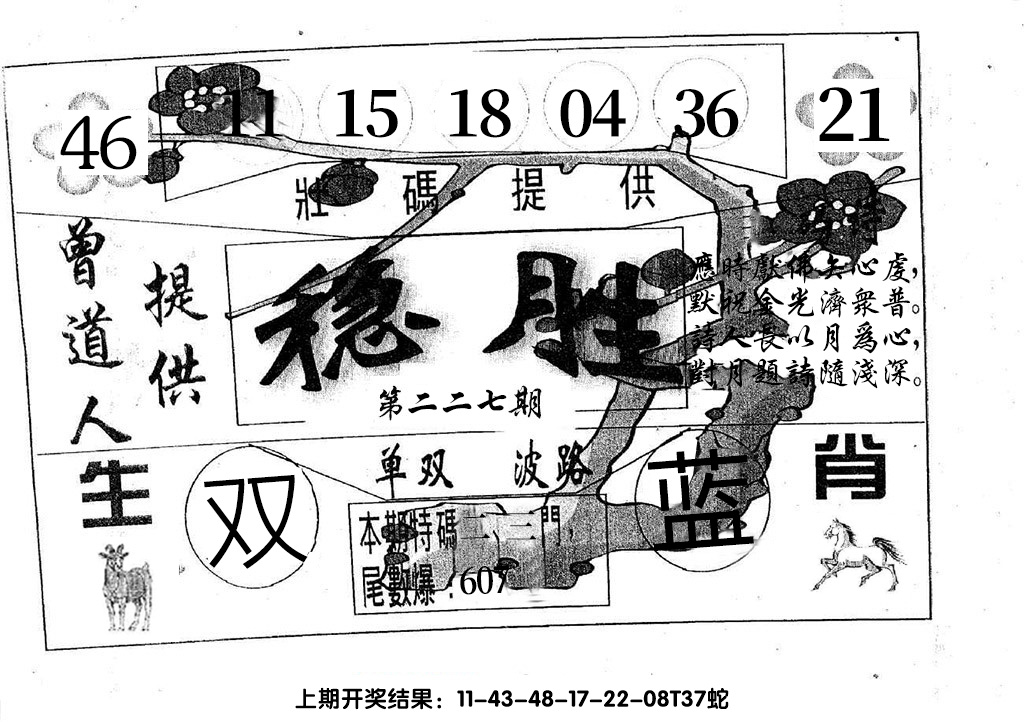 46 11 15 18 04 36 21
壯碼提供
特
曾道人
提供
稳胜
應時獻佛矢心虔，
默祝金光濟衆普。
詩人長以月爲心，
對月題詩隨淺深。
第二二七期
单双 波路
生肖
双
蓝
本期特碼二、三門，
尾數爆：607
上期开奖结果：11-43-48-17-22-08T37蛇